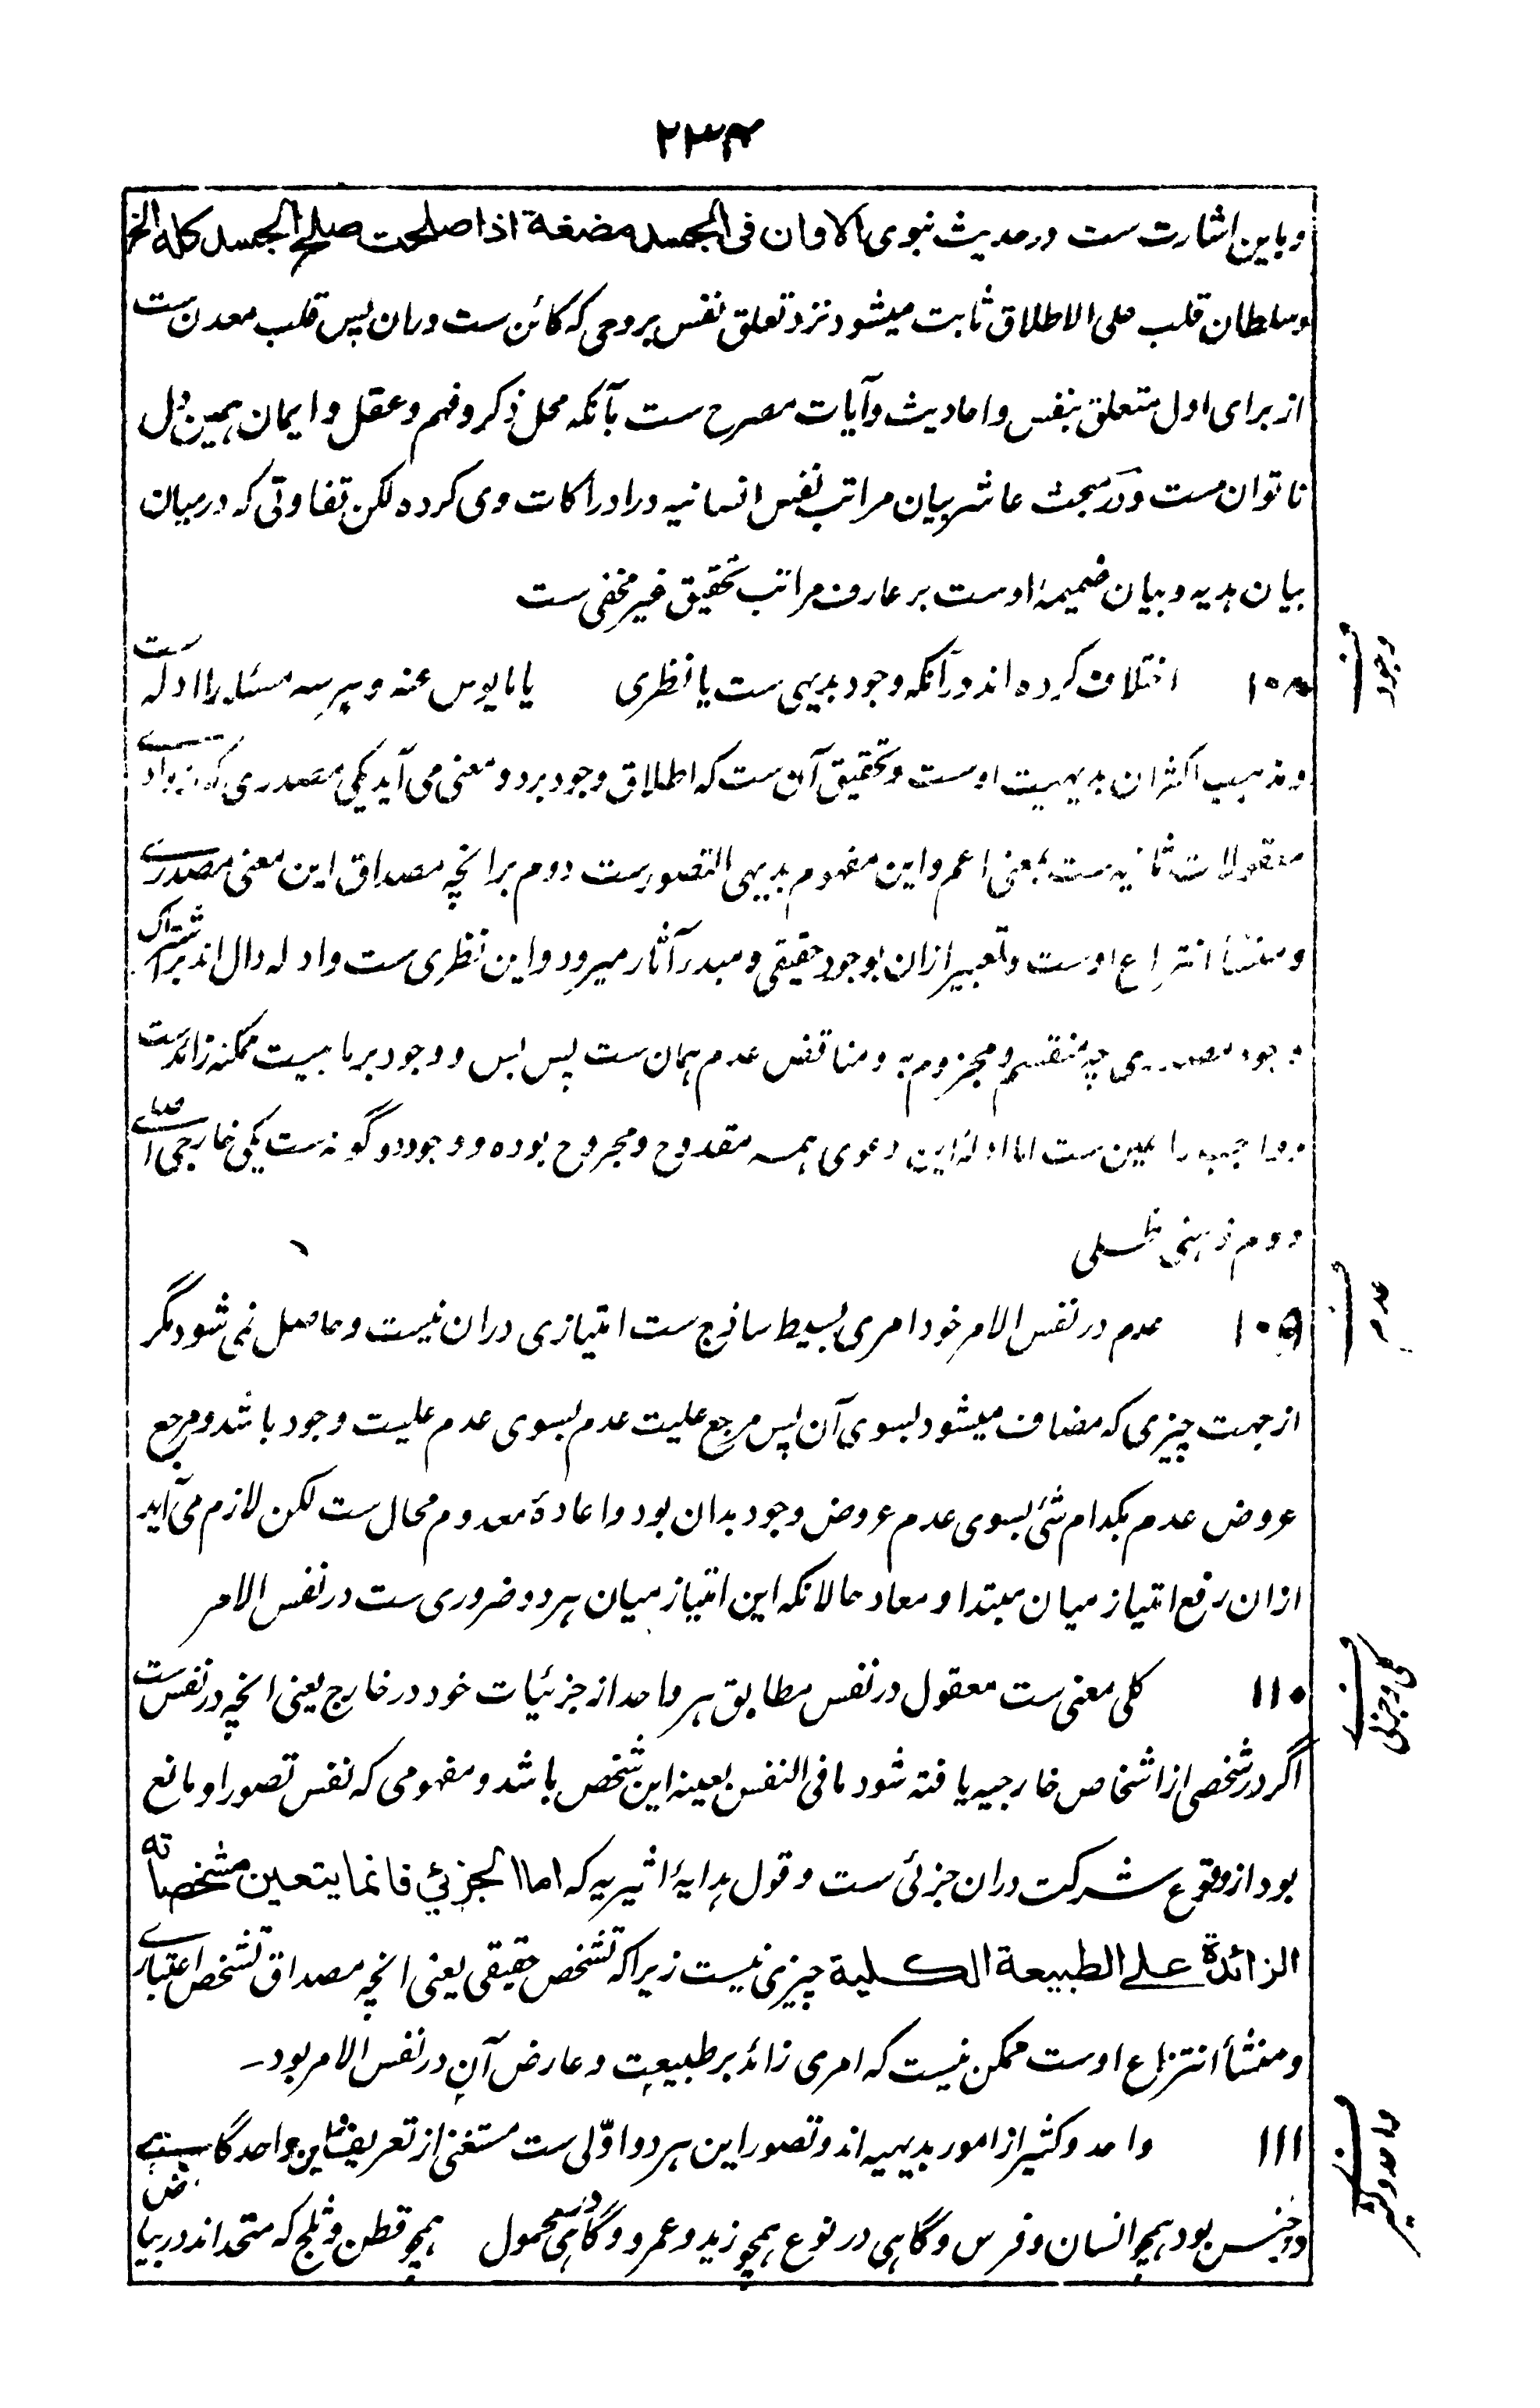 ۲۳۴
و باین اشارت ست در حدیث نبوی الا وان فی الجسد مضغة اذا صلحت صلح الجسد کله الخ
وسلطان قلب علی الاطلاق ثابت میشود نزد تعلق نفس بروحی که کائن ست دران پس قلب معدن ست
از برای اول متعلق بنفس و احادیث و آیات مصرح ست بآنکه محل ذکر و فهم و عقل و ایمان همین دل
ناتوان ست و در مبحث عاشر بیان مراتب نفس انسانیه در ادراکات وی کرده لکن تفاوتی که در میان
بیان هدیه و بیان ضمیمهٔ اوست بر عارف مراتب تحقیق غیر مخفی ست
وجود
۱۰۸ اختلاف کرده اند در آنکه وجود بدیهی ست یا نظری یا مایوس عنه و هر سه مسئله را ادله ست
و مذهب اکثران بدیهیت اوست و تحقیق آن ست که اطلاق وجود بر دو معنی می آید یکی مصدری که
معقولات ثانیه ست بمعنی اعم و این مفهوم بدیهی التصور ست دوم بر انچه مصداق این معنی مصدری
و منشأ انتزاع اوست و تعبیر ازان بوجود حقیقی و مبدر آثار میرود و این نظری ست و ادله دال اند بر اشتراک
وجود مصدری چه منقسم و مجزوم به و مناقض عدم همان ست پس بس و وجود بر ماهیت ممکنه زائد ست
و واجب را عین ست اما ادلهٔ این دعوی همه مقدوح و مجروح بوده و وجود دو گونه ست یکی خارجی اصلی
دوم ذهنی ظلی
عدم
۱۰۹ عدم در نفس الامر خود امری بسیط ساذج ست امتیازی دران نیست و حاصل نمی شود مگر
از جهت چیزی که مضاف میشود بسوی آن پس مرجع علیت عدم بسوی عدم علیت وجود باشد و مرجع
عروض عدم بکدام شئ بسوی عدم عروض وجود بدان بود و اعادهٔ معدوم محال ست لکن لازم می آید
ازان رفع امتیاز میان مبتدا و معاد حالانکه این امتیاز میان هر دو ضروری ست در نفس الامر
کلی و جزئی
۱۱۰ کلی معنی ست معقول در نفس مطابق هر واحد از جزئیات خود در خارج یعنی انچه در نفس ست
اگر در شخصی از اشخاص خارجیه یافته شود ما فی النفس بعینه این شخص باشد و مفهومی که نفس تصور او مانع
بود از وقوع شرکت دران جزئی ست و قول هدایهٔ اثیریه که اما الجزئي فانما یتعین مشخصاته
الزائدة علی الطبیعة الکلیة چیزی نیست زیرا که تشخص حقیقی یعنی انچه مصداق تشخص اعتباری
و منشأ انتزاع اوست ممکن نیست که امری زائد بر طبیعت و عارض آن در نفس الامر بود۔
واحد و کثیر
۱۱۱ واحد و کثیر از امور بدیهیه اند و تصور این هر دو اوّلی ست مستغنی از تعریف این واحد گاهی
در جنس بود همچو انسان و فرس و گاهی در نوع همچو زید و عمرو و گاهی در محمول همچو قطن و ثلج که متحد اند در بیاض